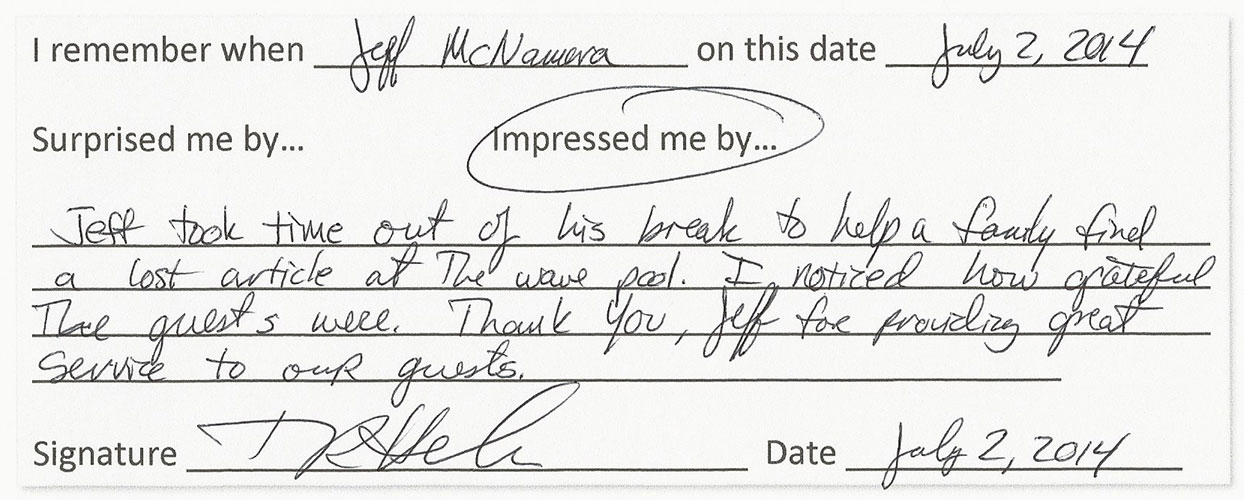 I remember when Jeff McNamera on this date July 2, 2014
Surprised me by... Impressed me by...
Jeff took time out of his break to help a family find
a lost article at The wave pool. I noticed how grateful
The guests were. Thank You, Jeff for providing great
Service to our guests.
Signature Date July 2, 2014